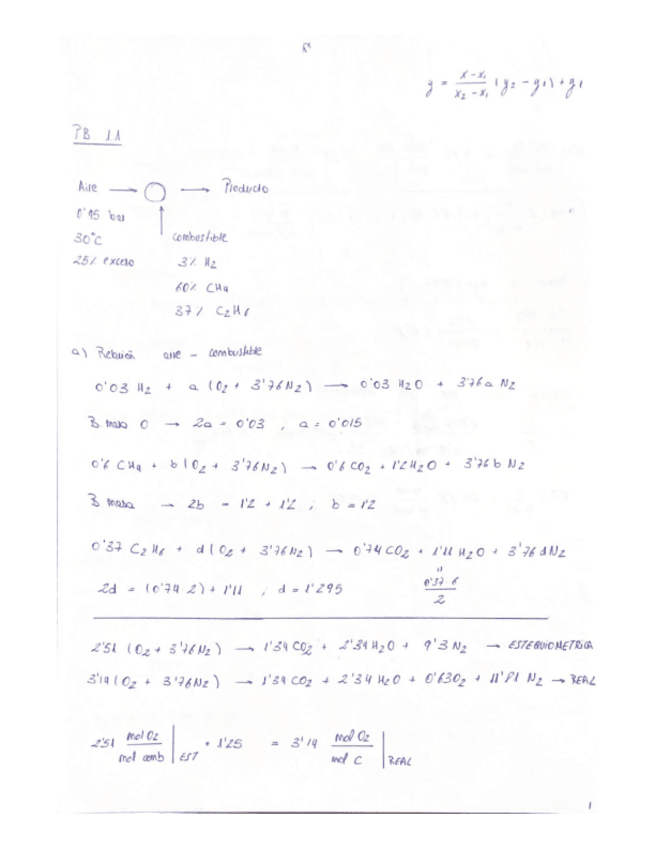 y = x-x₁/x₂-x₁ (y₂ - y₁) + y₁
PB 1.1
Aire → → Producto
0'95 bar
30°C combustible
25% exceso 3% H₂
60% CH₄
37% C₂H₆
a) Relación aire - combustible
0'03 H₂ + a (O₂ + 3'76 N₂) → 0'03 H₂O + 3'76 a N₂
B. masa O → 2a = 0'03 , a = 0'015
0'6 CH₄ + b (O₂ + 3'76 N₂) → 0'6 CO₂ + 1'2 H₂O + 3'76 b N₂
B masa → 2b = 1'2 + 1'2 ; b = 1'2
0'37 C₂H₆ + d (O₂ + 3'76 N₂) → 0'74 CO₂ + 1'11 H₂O + 3'76 d N₂
"
2d = (0'74·2) + 1'11 ; d = 1'295 0'37·6/2
2'51 (O₂ + 3'76 N₂) → 1'34 CO₂ + 2'34 H₂O + 9'3 N₂ → ESTEQUIOMETRICA
3'14 (O₂ + 3'76 N₂) → 1'34 CO₂ + 2'34 H₂O + 0'63 O₂ + 11'81 N₂ → REAL
2'51 mol O₂/mol comb | EST · 1'25 = 3'14 mol O₂/mol C | REAL
1